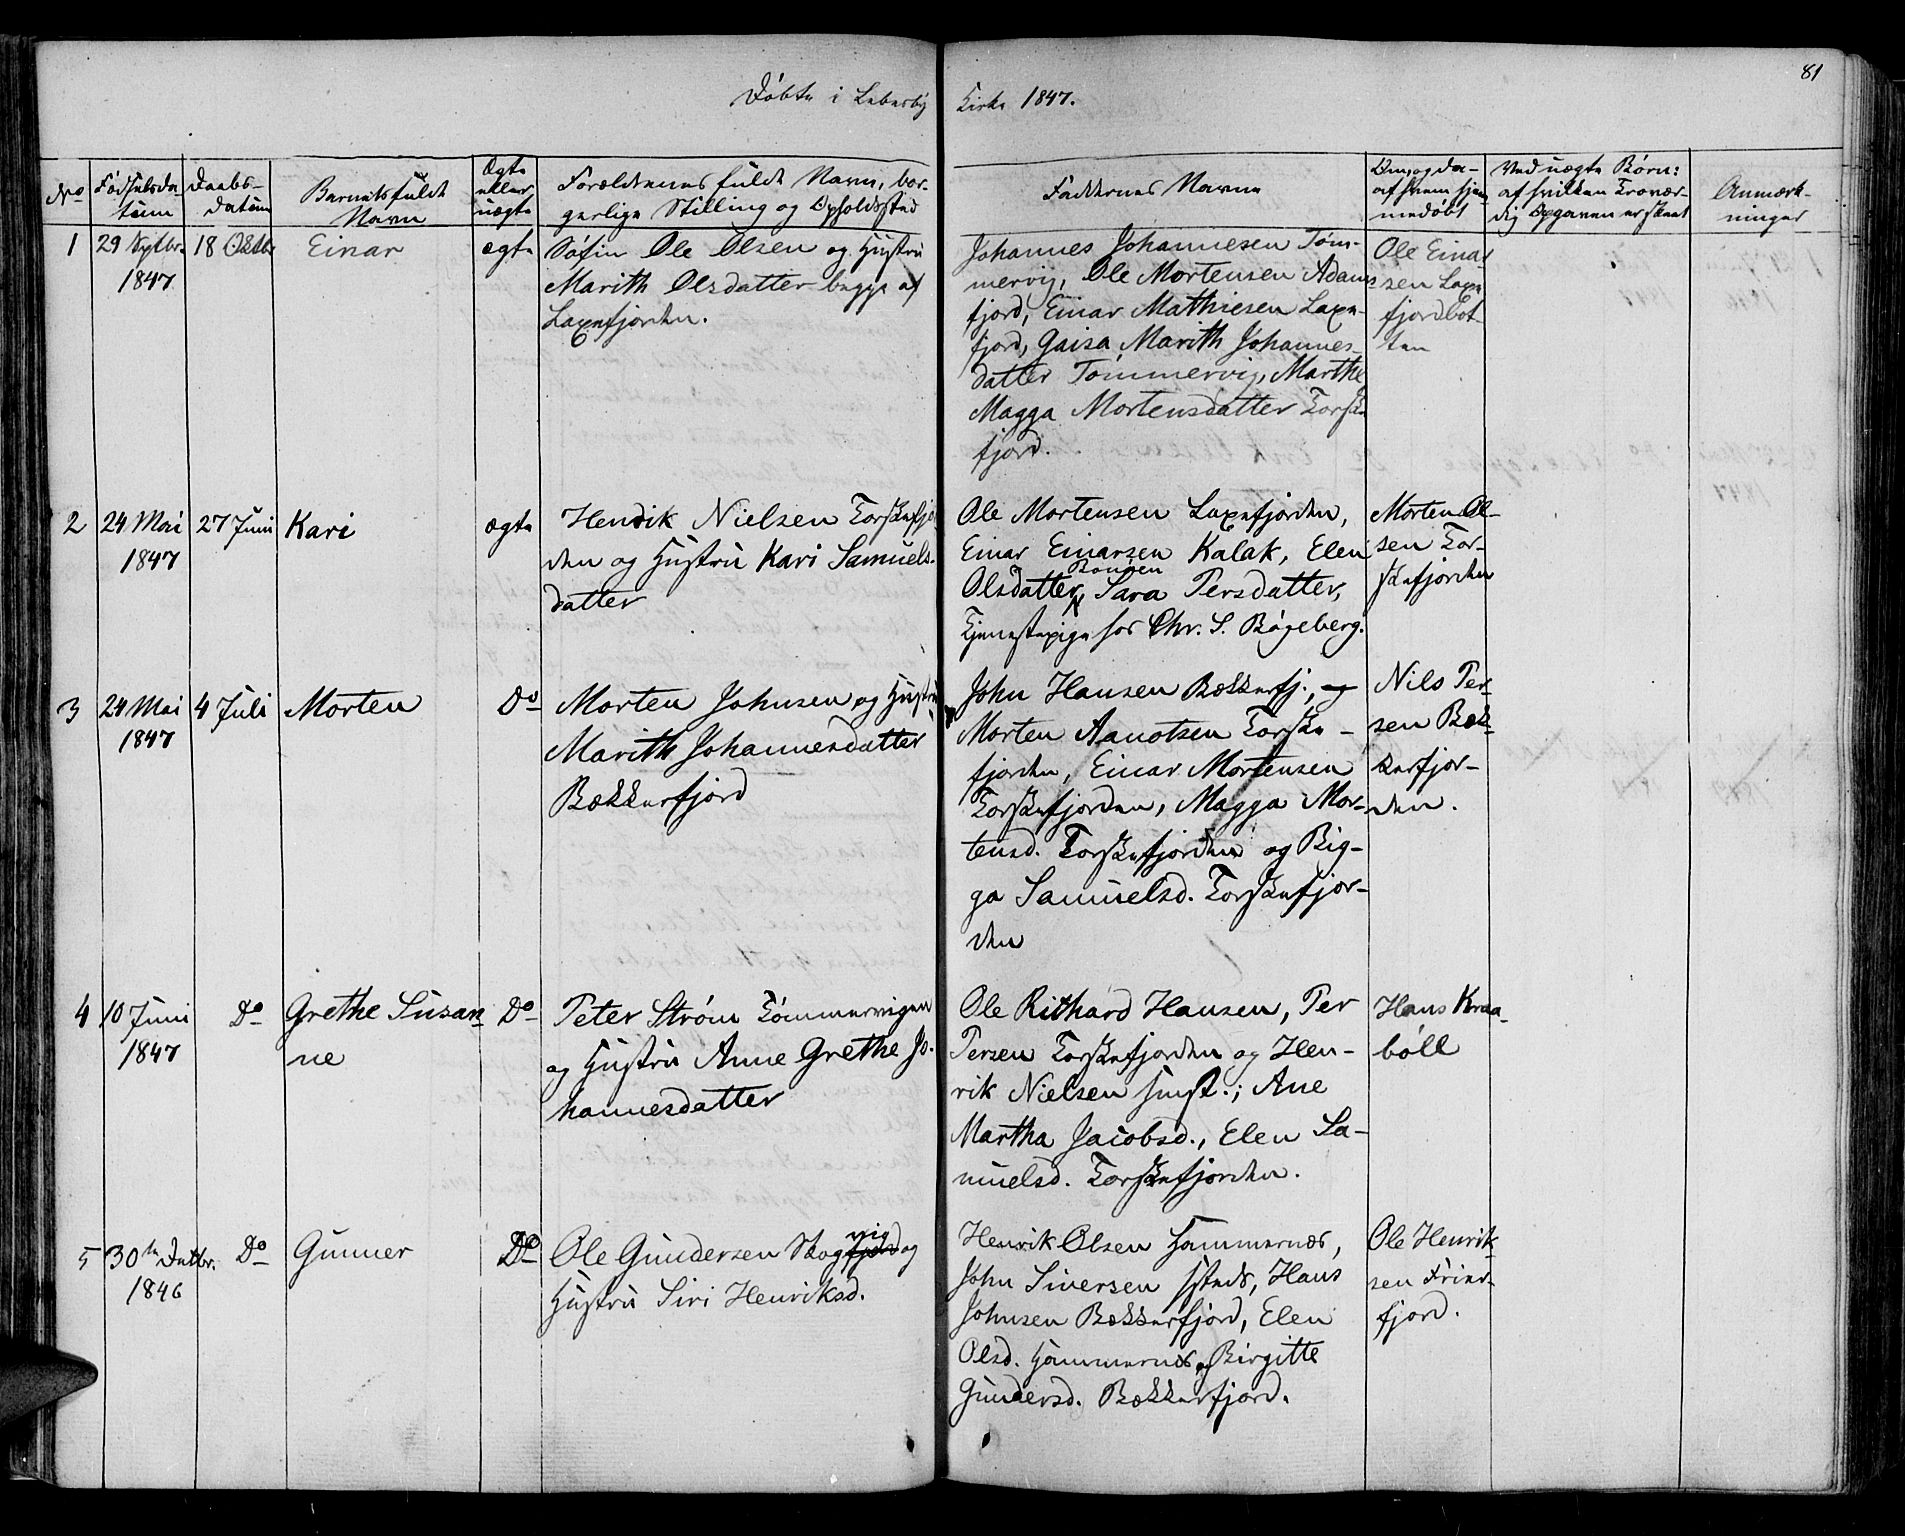 81
Døbte i Lebesby Kirke 1847.
No
Fødselsda-
tum
Daabs-
datum
Barnets fulde
Navn
Ægte
eller
uægte
Forældrenes fulde Navn, bor-
gerlige Stilling og Opholdssted
Faddernes Navne
Om, og da
af hvem hjem-
medøbt
Ved uægte Børn:
af hvilken Trovær-
dig Opgaven er skeet
Anmærk-
ninger
1
29 Septbr.
1847
18 Octbr
Einar
ægte
Søfin Ole Olsen og Hustru
Marith Olsdatter begge af
Laxefjorden.
Johannes Johannesen Tøm-
mervig, Ole Mortensen Adams
fjord, Einar Mathiesen Laxe-
fjord, Gaisa Marith Johannes-
datter Tømmervig, Marthe
Magga Mortensdatter Torske
fjord.
Ole Einar
sen Laxe
fjordbot-
ten
2
24 Mai
1847
27 Juni
Kari
ægte
Hendik Nielsen Torskefjor-
den og Hustru Kari Samuels-
datter
Ole Mortensen Laxefjorden,
Einar Einarsen Kalak, Elen
Olsdatter, Sara Persdatter,
Tjenestepige hos Chr. S. Bøgeberg.
Morten Ol-
sen Tor-
skefjorden
3
24 Mai
1847
4 Juli
Morten
Do
Morten Johnsen og Hustru
Marith Johannesdatter
Bekkerfjord
John Hansen Bekkerfj., og
Morten Aanotsen Torske-
fjorden, Einar Mortensen
Torskefjorden, Magga Mor-
tensd. Torskefjorden og Big-
ga Samuelsd. Torskefjor-
den
Nils Per-
sen Bek-
kerfjor-
den.
4
10 Juni
1847
Do
Grethe Susan-
ne
Do
Peter Strøm Tømmervigen
og Hustru Anne Grethe Jo-
hannesdatter
Ole Rithard Hansen, Per
Persen Torskefjorden og Hen-
rik Nielsen smst.; Ane
Martha Jacobsd., Elen Sa-
muelsd. Torskefjorden.
Hans Kraa-
bøll
5
30te Decbr.
1846
Do
Gunner
Do
vig
Ole Gundersen Skogfjord og
Hustru Siri Henriksd.
Henrik Olsen Hammernæs,
John Siversen ssteds, Hans
Johnsen Bekkerfjord, Elen
Olsd. Hammernes og Birgitte
Gundersd. Bekkerfjord.
Ole Henrik-
sen Frier-
fjord.